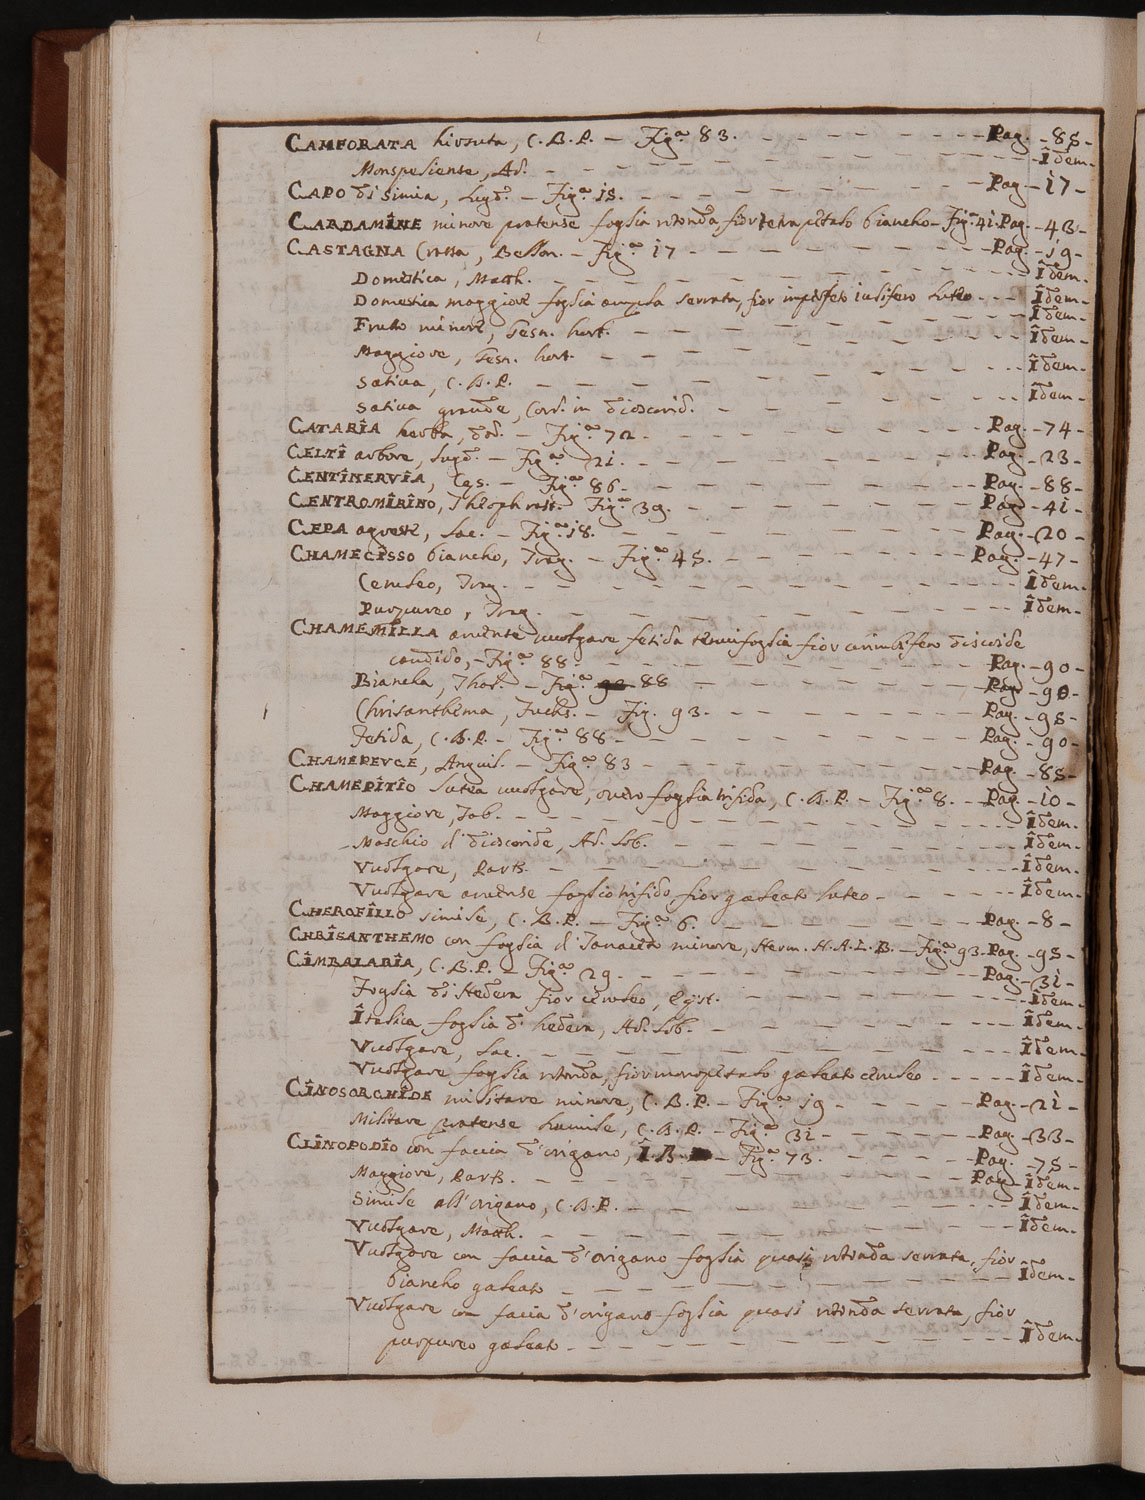 CAMFORATA hirsuta, C.B.P. — Fig.ª 83. Pag. 85
Monspeliense, Ad. Îdem.
CAPO di Simia, Lugd. — Fig.ª 15. Pag. 17
CARDAMÎNE minore pratense foglia ritonda fior tetrapetalo biancho — Fig.ª 41. Pag. 43
CASTAGNA Bellon. — Fig.ª 17 Pag. 19
Domestica, Matth. Îdem.
Domestica maggiore foglia ampla serrata, fior luteo Îdem.
Frutto minore, Gesn. hort. Îdem.
Maggiore, Gesn. hort. Îdem.
Sativa, C.B.P. Îdem.
Sativa grande, Cord. in Dioscorid. Îdem.
CATARÎA herba, Dod. — Fig.ª 72. Pag. 74
CELTÎ arbore, Lugd. — Fig.ª 21. Pag. 23
CENTÎNERVÎA, Ces. — Fig.ª 86 Pag. 88
CENTROMÎRÎNO, Theophrast. Fig.ª 39. Pag. 41
CEPA agreste, Lac. — Fig.ª 18. Pag. 20
CHAMECÎSSO biancho, Trag. — Fig.ª 45. Pag. 47
Ceruleo, Trag. Îdem
Purpureo, Trag. Îdem
CHAMEMÎLLA arvense vuolgare fetida tenuifoglia fior corimbifero discoide
candido, — Fig.ª 88 Pag. 90
Biancha, Thal. — Fig.ª 88 Pag. 90
Chrisanthema, Fuchs. — Fig. 93. Pag. 95
Fetida, C.B.P. — Fig.ª 88 Pag. 90
CHAMEPEUCE, Anguil. — Fig.ª 83 Pag. 85
CHAMEPÎTÎO lutea vuolgare, overo foglia trifida, C.B.P. — Fig.ª 8. Pag. 10
Maggiore, Tab. Îdem.
Maschio di Dioscoride, Ad. Lob. Îdem.
Vuolgare, Park. Îdem.
Vuolgare arvense foglio trifido fior galeato luteo Îdem.
CHEROFÎLLO simile, C.B.P. — Fig.ª 6. Pag. 8
CHRÎSANTHEMO con foglia di Tanaceto minore, Herm. H.A.L.B. — Fig.ª 93. Pag. 95
CÎMBALARÎA, C.B.P. — Fig.ª 29. Pag. 31
Foglia di Hedera fior ceruleo, Eyst. Îdem
Îtalica foglia d' hedera, Ad. Lob. Îdem
Vuolgare, Lac. Îdem
Vuolgare foglia ritonda, fior monopetalo galeato ceruleo Îdem
CÎNOSORCHÎDE militare minore, C.B.P. — Fig.ª 19 Pag. 21
Militare pratense humile, C.B.P. — Fig.ª 31 Pag. 33
CLÎNOPODÎO con faccia d'origano, Î.B. — Fig.ª 73. Pag. 75
Maggiore, Park. Pag. Îdem
Simile all'origano, C.B.P. Îdem.
Vuolgare, Matth. Îdem
Vuolgare con faccia d'origano foglia quasi ritonda serrata, fior
biancho galeato Îdem
Vuolgare con facia d'origano foglia quasi ritonda serrata, fior
purpureo galeato Îdem